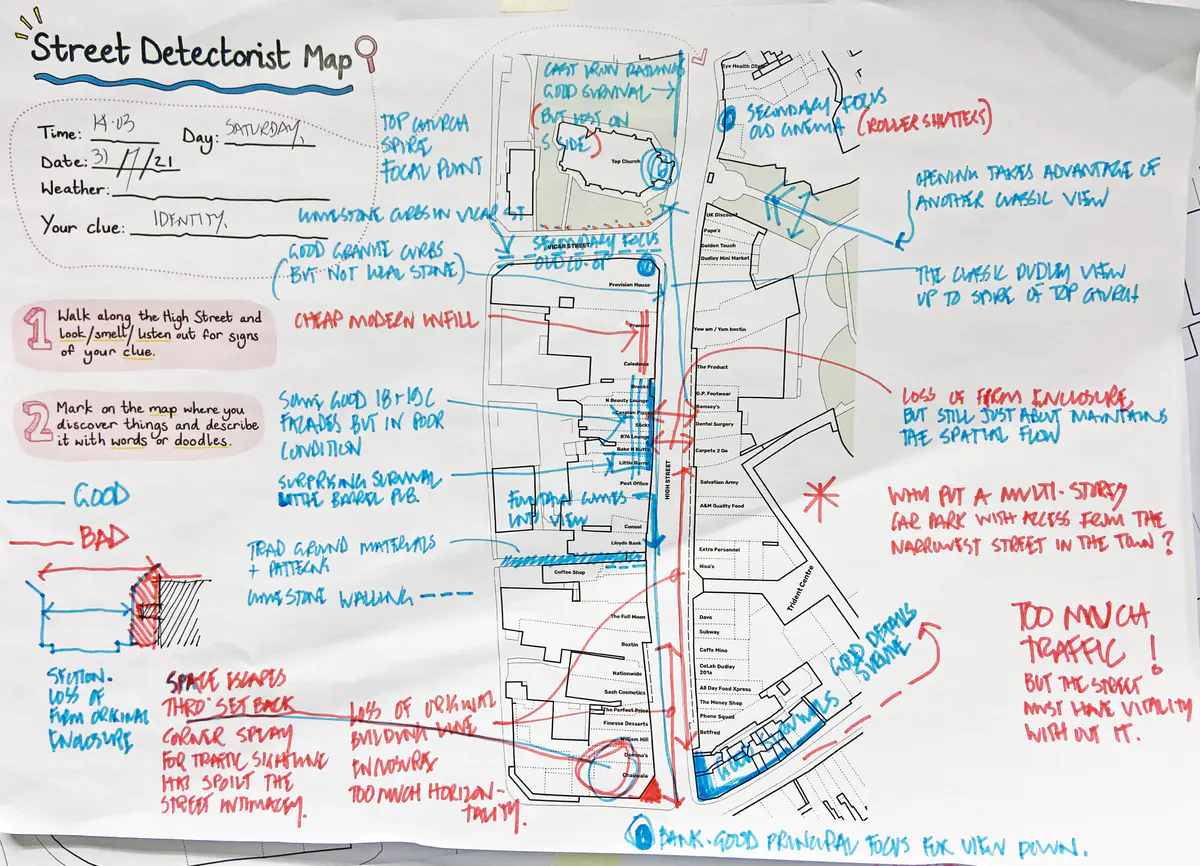 Street Detectorist Map
Time: 14.03 Day: SATURDAY.
Date: 31/7/21
Weather:
Your clue: IDENTITY.
1 Walk along the High Street and
look/smell/listen out for signs
of your clue.
2 Mark on the map where you
discover things and describe
it with words or doodles.
GOOD
BAD
SECTION.
LOSS OF
FIRM ORIGINAL
ENCLOSURE
SPACE ESCAPES
THRO' SET BACK
CORNER SPLAY
FOR TRAFFIC SIGHTLINE
HAS SPOILT THE
STREET INTIMACY.
LOSS OF ORIGINAL
BUILDING LINE
ENCLOSURE
TOO MUCH HORIZON-
TALITY.
TOP CHURCH
SPIRE
FOCAL POINT
LIMESTONE CURBS IN VICAR ST
GOOD GRANITE CURBS
(BUT NOT LOCAL STONE)
CHEAP MODERN INFILL
SOME GOOD 18+19C
FACADES BUT IN POOR
CONDITION
SURPRISING SURVIVAL
LITTLE BARREL PUB.
TRAD GROUND MATERIALS
+ PATTERNS
LIMESTONE WALLING
CAST IRON RAILINGS
GOOD SURVIVAL
(BUT LOST ON
S SIDE)
Top Church
VICAR STREET
SECONDARY FOCUS
OLD CO-OP
Provision House
Premier
Caledonia
Brocks
N Beauty Lounge
Caspian Pizza
Slicks
B76 Lounge
Bake N Butty
Little Barrel
Post Office
COMES
INTO VIEW
Consol
Lloyds Bank
Coffee Shop
The Full Moon
Bostin
Nationwide
Sash Cosmetics
The Perfect Price
Finesse Desserts
William Hill
Domino's
Chaiiwala
HIGH STREET
Eye Health Clinic
SECONDARY FOCUS
OLD CINEMA (ROLLER SHUTTERS)
UK Discount
Papa'z
Golden Touch
Dudley Mini Market
Yow am / Yam bostin
The Product
G.P. Footwear
Ramsey's
Dental Surgery
Carpets 2 Go
Salvation Army
A&M Quality Food
Extra Personnel
Nice's
Trident Centre
Dava
Subway
Caffe Mino
CeLab Dudley
201a
All Day Food Xpress
The Money Shop
Phone Squad
Betfred
GOOD DETAILS
SURVIVE
OPENING TAKES ADVANTAGE OF
ANOTHER CLASSIC VIEW
THE CLASSIC DUDLEY VIEW
UP TO SPIRE OF TOP CHURCH
LOSS OF FIRM ENCLOSURE,
BUT STILL JUST ABOUT MAINTAINS
THE SPATIAL FLOW
WHY PUT A MULTI-STOREY
CAR PARK WITH ACCESS FROM THE
NARROWEST STREET IN THE TOWN?
TOO MUCH
TRAFFIC!
BUT THE STREET
MUST HAVE VITALITY
WITHOUT IT.
BANK. GOOD PRINCIPAL FOCUS FOR VIEW DOWN.